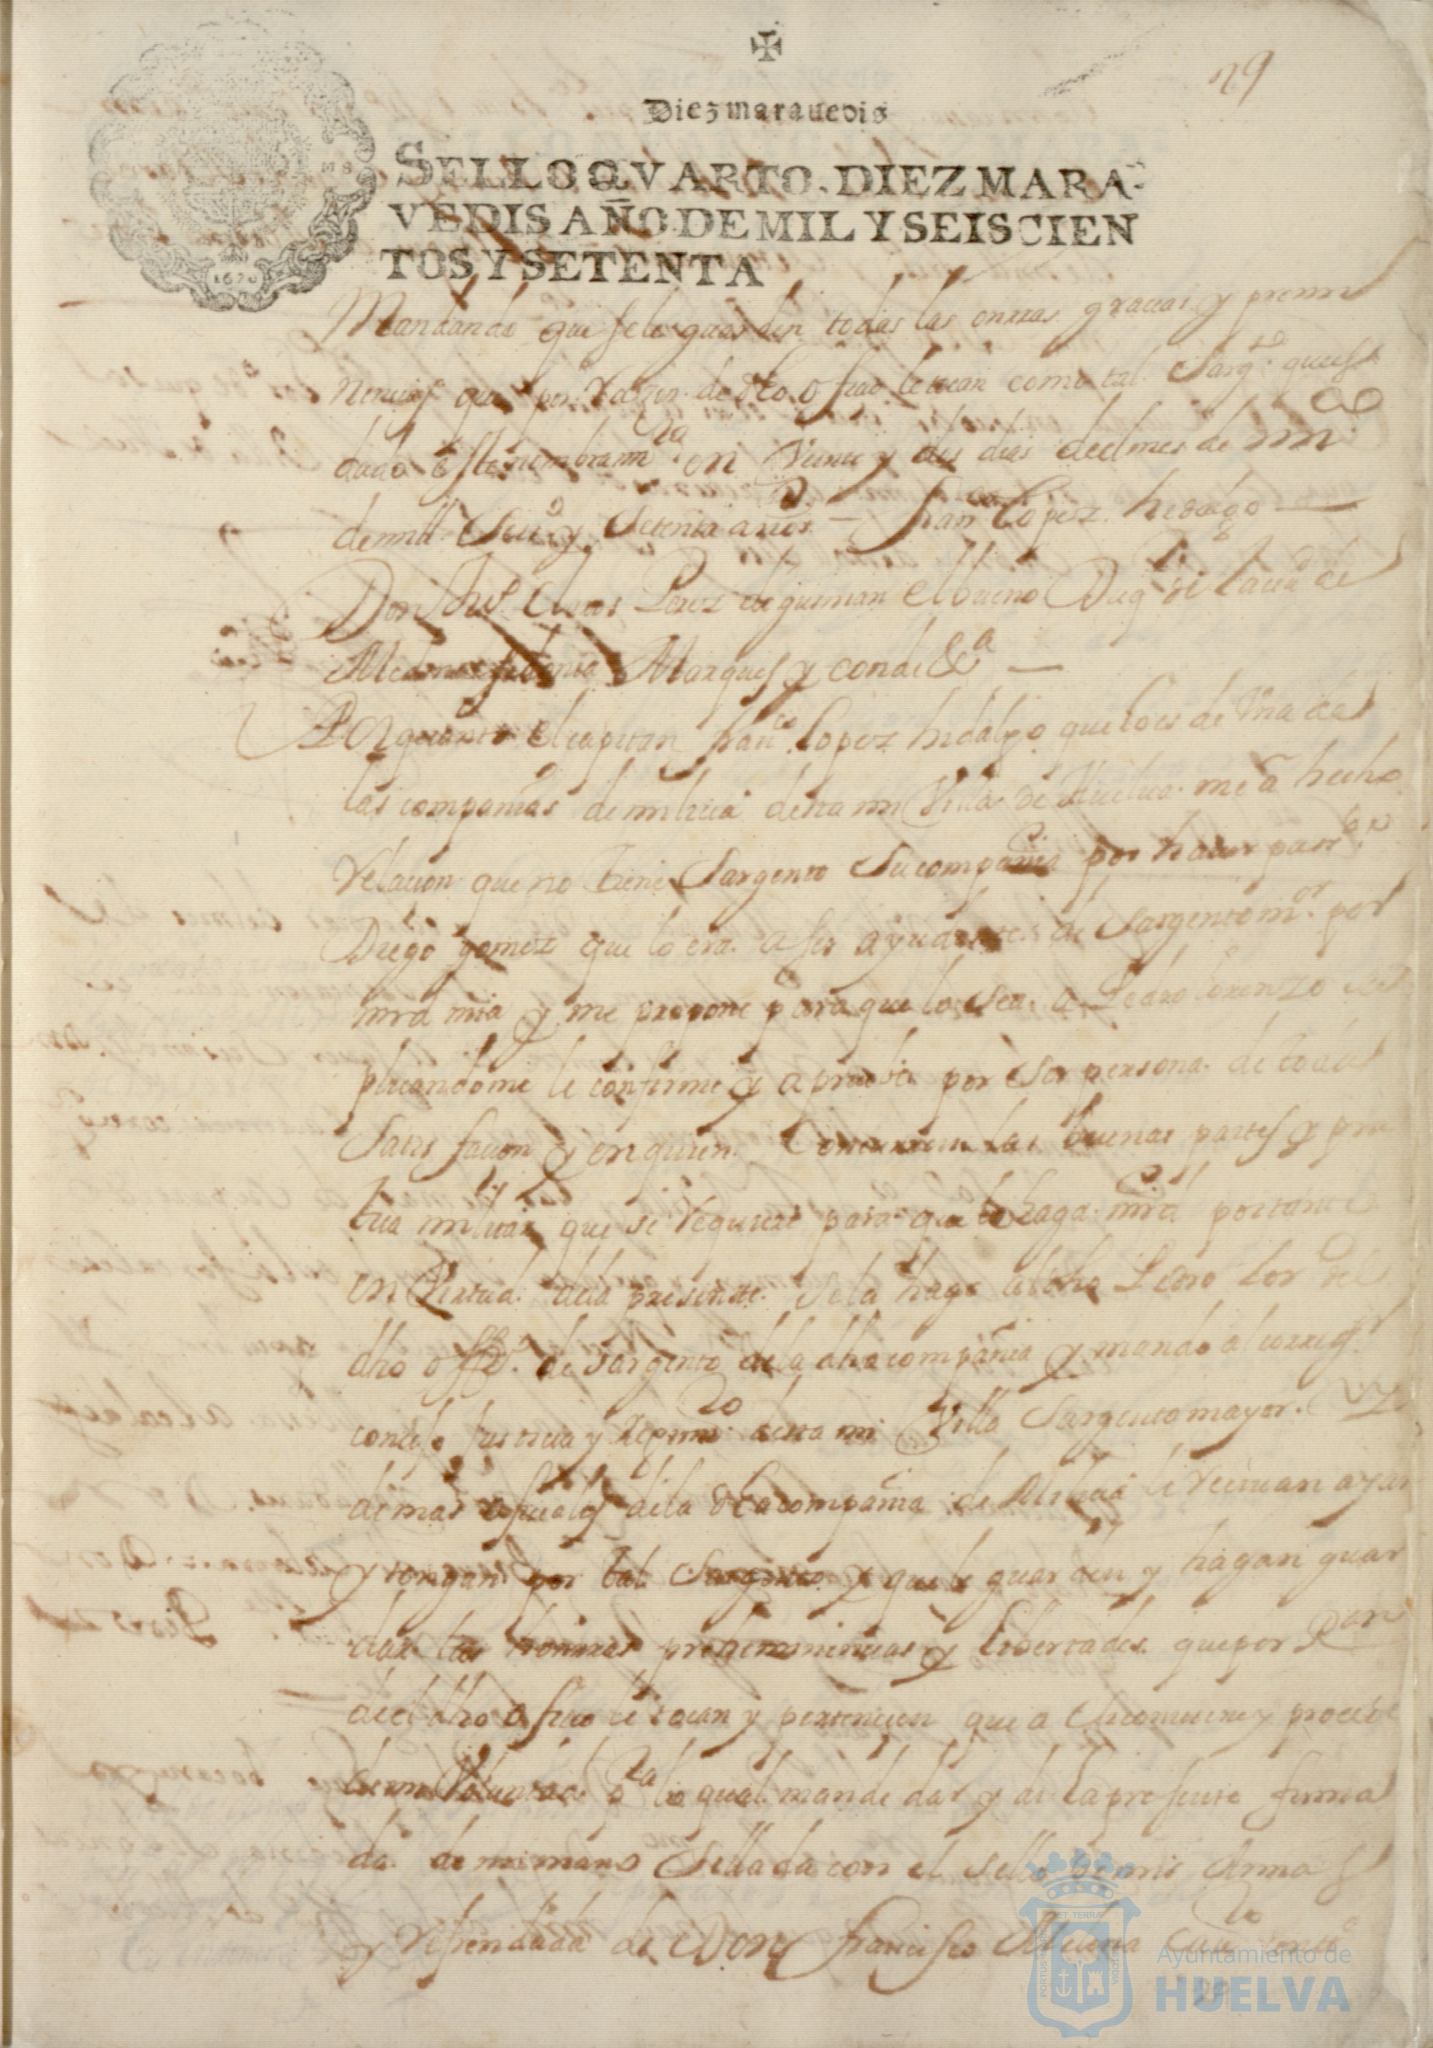 29
Diez maravedis
SELLO QVARTO, DIEZ MARA-
VEDIS AÑO DE MIL Y SEISCIEN
TOS Y SETENTA
1670
Mandando que se le guarden todas las onrras gracias y premi
nencias que por Raçon de dho ofiçio le tocan como tal Sargto que es
dado este nombramto en Veinte y dos dias del mes de
de mill Seiso y Setenta años — franco Lopez hidalgo
Don Juo Claros Perez de guzman el bueno Duq de la ciud de
Medina sidonia Marques y conde &a
Por quanto el capitan franco Lopez hidalgo que lo es de Vna de
las compañias de miliçia desta mi Villa de Huelva me a hecho
relacion que no tiene Sargento Su compañia por haver
Diego gomez que lo era a ser ayudante de Sargento mor por
mrd mia y me propone para que lo sea a Pedro Lorenzo
plicandome le confirme y apruebe por ser persona de toda
Satisfaçion y en quien Concurren las buenas partes y pra
tica militar que se requiere para que le haga mrd por tanto
en Virtud de la presente se la hago al dho Pedro Loro del
dho offo de sargento de la dha compañia y mando al corregr
consejo Justicia y Regimto desta mi Villa Sargento mayor y
demas ofiçiales de la dha compañia de Miliçia le reciuan ayan
y tengan por tal Sargento y que le guarden y hagan guar
dar las honrras preheminencias y libertades que por Raçn
del dho ofiçio le tocan y pertenecen que a
mi Voluntad pa lo qual mande dar y di la presente firma
da de mi mano Sellada con el sello de mis Armas
y refrendada de Don francisco
ET TERRAE
PORTUS MARIS
CUSTODIA
Ayuntamiento de
HUELVA